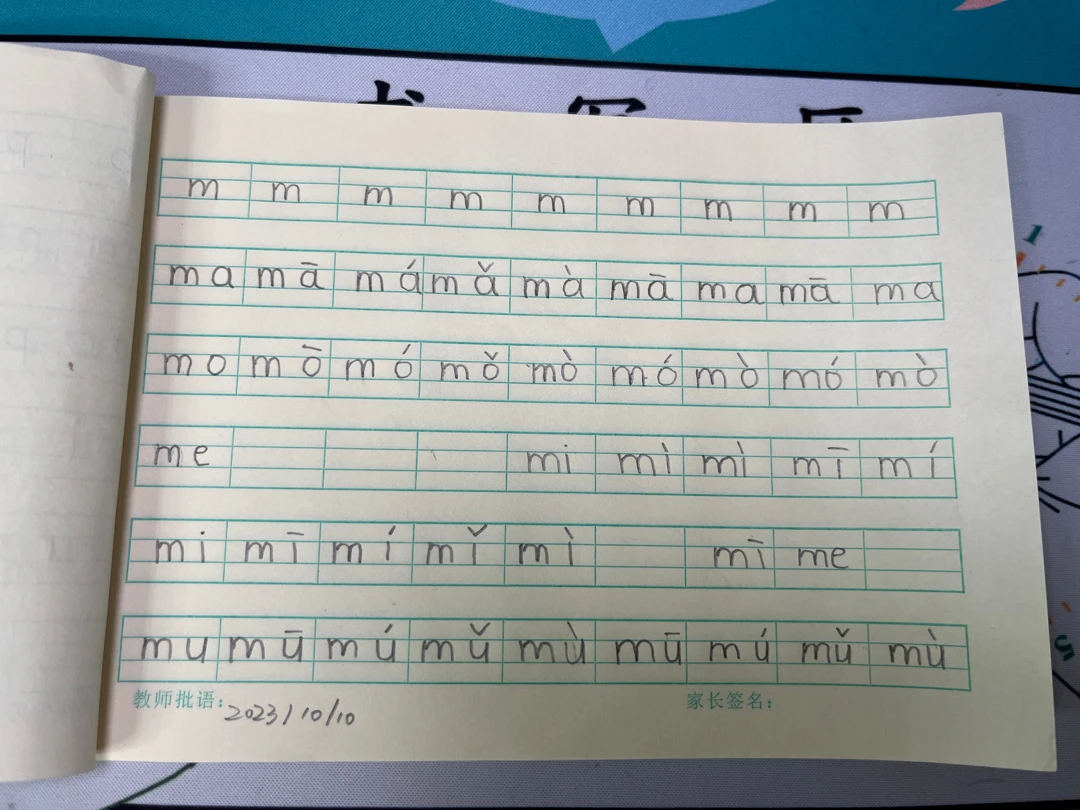 m m m m m m m m m
ma mā má mǎ mà mā ma mā ma
mo mō mó mǒ mò mó mò mó mò
me mi mì mì mī mí
mi mī mí mǐ mì mī me
mu mū mú mǔ mù mū mú mǔ mù
教师批语: 2023/10/10 家长签名: